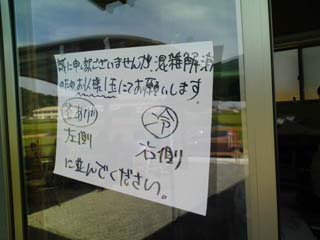 誠に申し訳ございませんが混雑解消
のためお1人様1玉にてお願いします。
冷
左側
右側
に並んでください。